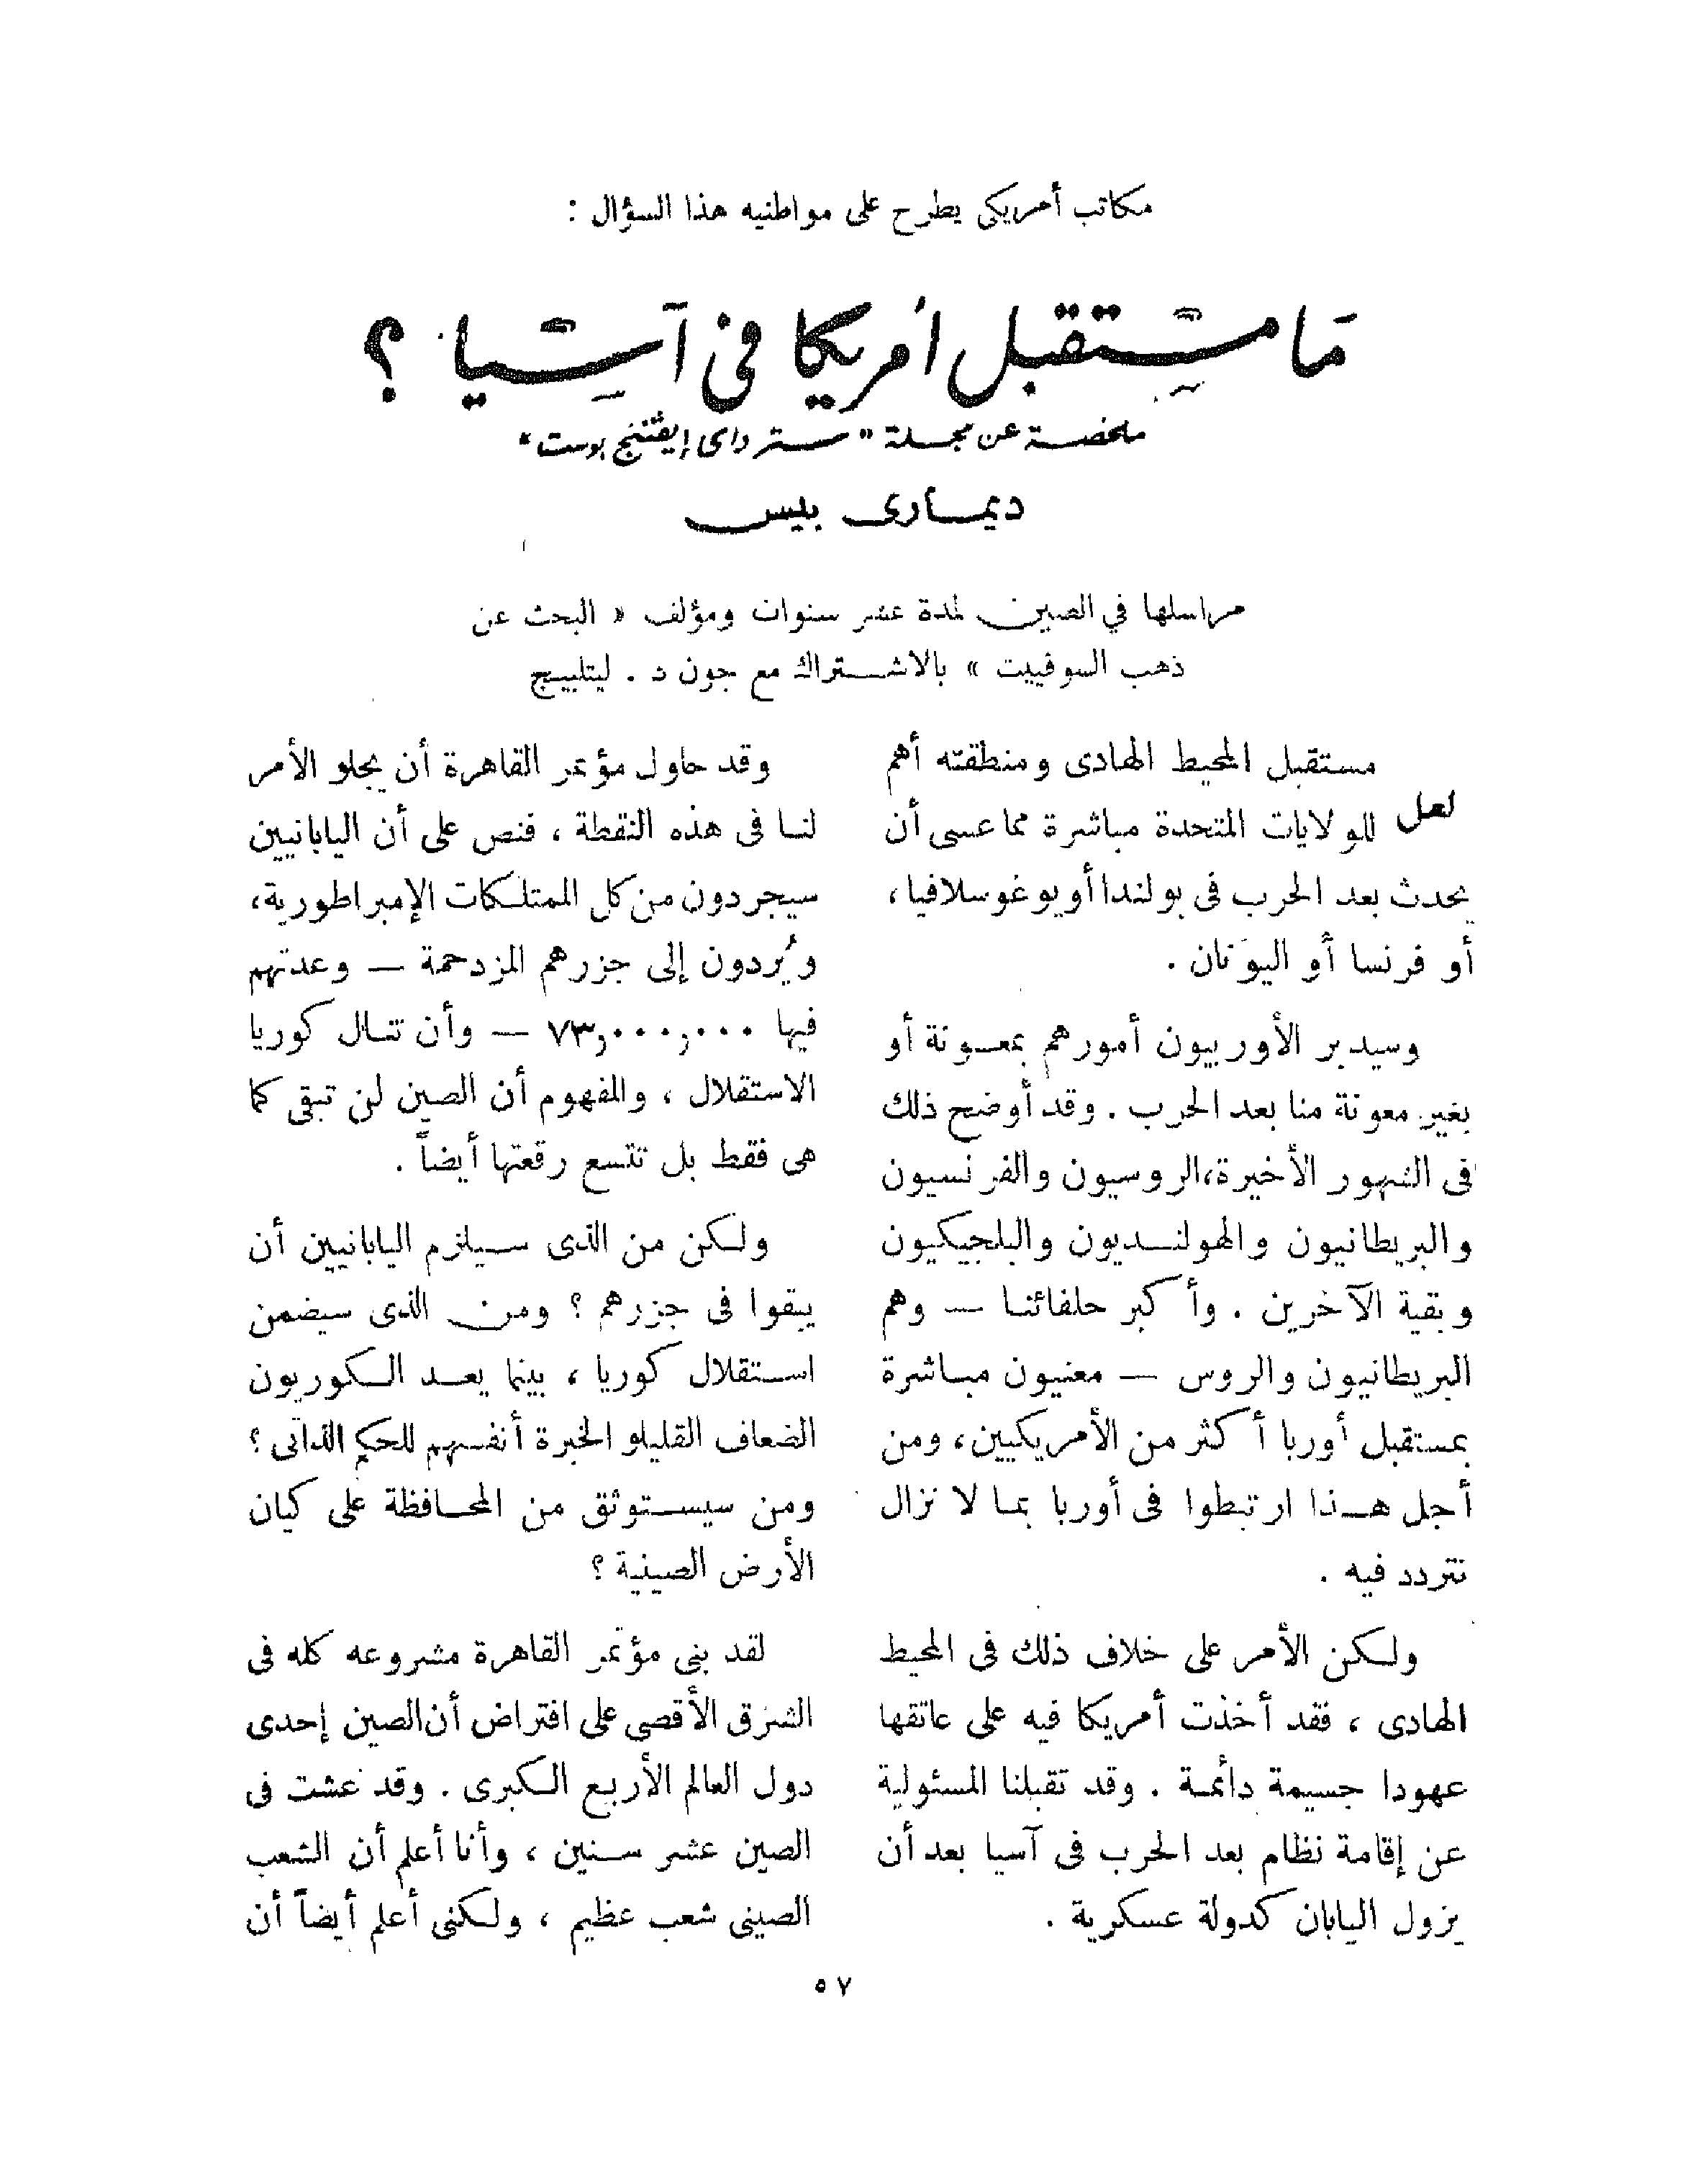 مكاتب أمريكى يطرح على مواطنيه هذا السؤال :
مَا مسْتِقبل أمريكا فى آسْيِا ؟
ملخصة عن مجلة " ستر داى إيڤننج بوست "
ديمارى بيس
مراسلها في الصين لمدة عشر سنوات ومؤلف « البحث عن
ذهب السوفييت » بالاشتراك مع جون د . ليتلبيج
لعل مستقبل المحيط الهادى ومنطقته أهم
للولايات المتحدة مباشرة مما عسى أن
يحدث بعد الحرب فى بولندا أو يوغوسلافيا ،
أو فرنسا أو اليونان .
وسيدبر الأوربيون أمورهم بمعونة أو
بغير معونة منا بعد الحرب . وقد أوضح ذلك
فى الشهور الأخيرة، الروسيون والفرنسيون
والبريطانيون والهولنديون والبلجيكيون
وبقية الآخرين . وأكبر حلفائنا — وهم
البريطانيون والروس — معنيون مباشرة
بمستقبل أوربا أكثر من الأمريكيين، ومن
أجل هذا ارتبطوا فى أوربا بما لا نزال
نتردد فيه .
ولكن الأمر على خلاف ذلك فى المحيط
الهادى ، فقد أخذت أمريكا فيه على عاتقها
عهودا جسيمة دائمة . وقد تقبلنا المسئولية
عن إقامة نظام بعد الحرب فى آسيا بعد أن
يزول اليابان كدولة عسكرية .
وقد حاول مؤتمر القاهرة أن يجلو الأمر
لنا فى هذه النقطة ، فنص على أن اليابانيين
سيجردون من كل الممتلكات الإمبراطورية،
ويُردون إلى جزرهم المزدحمة — وعدتهم
فيها ٧٣,٠٠٠,٠٠٠ — وأن تنال كوريا
الاستقلال ، والمفهوم أن الصين لن تبقى كما
هى فقط بل تتسع رقعتها أيضاً .
ولكن من الذى سيلزم اليابانيين أن
يبقوا فى جزرهم ؟ ومن الذى سيضمن
استقلال كوريا ، بينما يعد الكوريون
الضعاف القليلو الخبرة أنفسهم للحكم الذاتى ؟
ومن سيستوثق من المحافظة على كيان
الأرض الصينية ؟
لقد بنى مؤتمر القاهرة مشروعه كله فى
الشرق الأقصى على افتراض أن الصين إحدى
دول العالم الأربع الكبرى . وقد عشت فى
الصين عشر سنين ، وأنا أعلم أن الشعب
الصينى شعب عظيم ، ولكنى أعلم أيضاً أن
٥٧